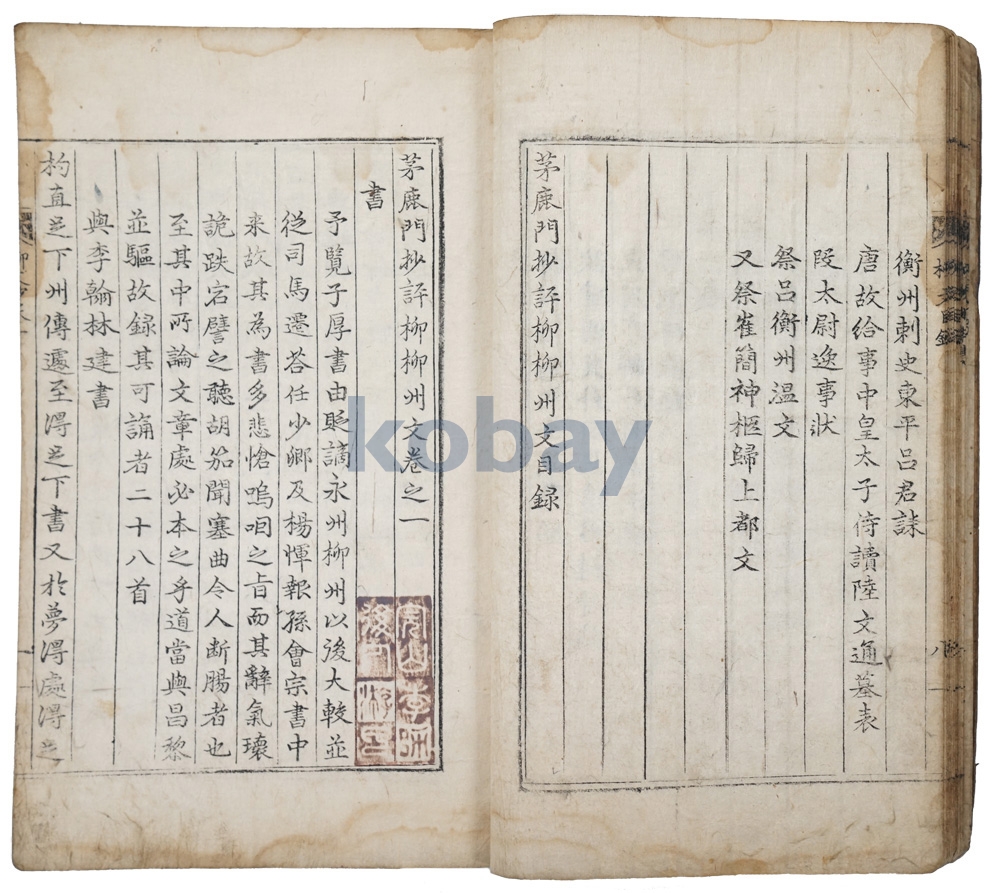 衡州刺史東平呂君誄
唐故給事中皇太子侍讀陸文通墓表
段太尉逸事狀
祭呂衡州溫文
又祭崔簡神柩歸上都文
茅鹿門抄評柳柳州文目録
茅鹿門抄評柳柳州文卷之一
書
予覽子厚書由貶謫永州柳州以後大較並
從司馬遷荅任少卿及楊惲報孫會宗書中
来故其為書多悲愴嗚咽之旨而其辭氣瓌
詭跌宕譬之聽胡笳聞塞曲令人断腸者也
至其中所論文章處必本之乎道當與昌黎
並驅故録其可誦者二十八首
與李翰林建書
杓直足下州傳遽至得足下書又於夢得處得足
kobay